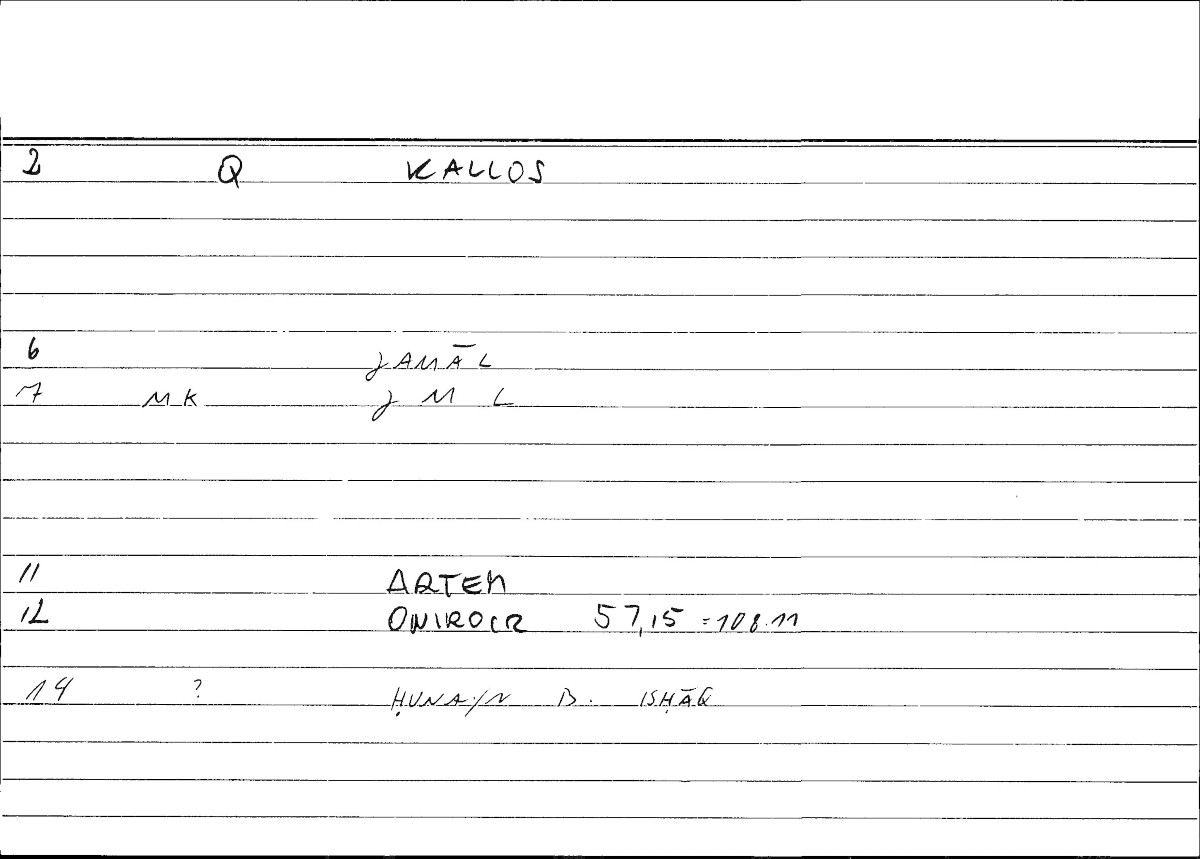 2 Q KALLOS
6 JAMĀL
7 MK J M L
11 ARTEM
12 ONIROCR 57,15 = 108.11
14 ? ḤUNAYN B. ISḤĀQ